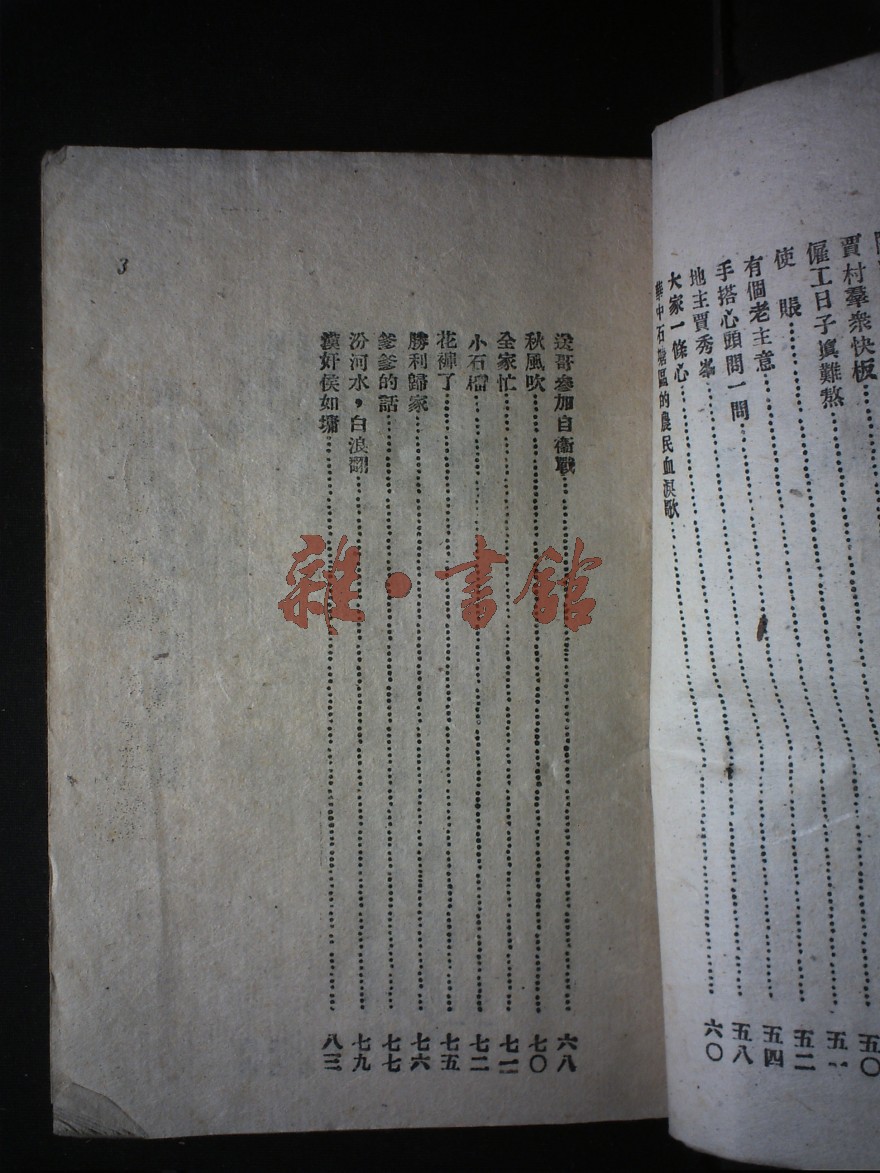 賈村羣衆快板
僱工日子眞難熬……五〇
使賬……五一
有個老主意……五二
手搭心頭問一問……五四
地主賈秀峯……五八
大家一條心……六〇
華中石塘區的農民血淚歌
3
送哥參加自衞戰……六八
秋風吹……七〇
全家忙……七一
小石榴……七二
花褲了……七五
勝利歸家……七六
爹爹的話……七七
汾河水，白浪翻……七九
漢奸侯如墉……八三
雜·書館